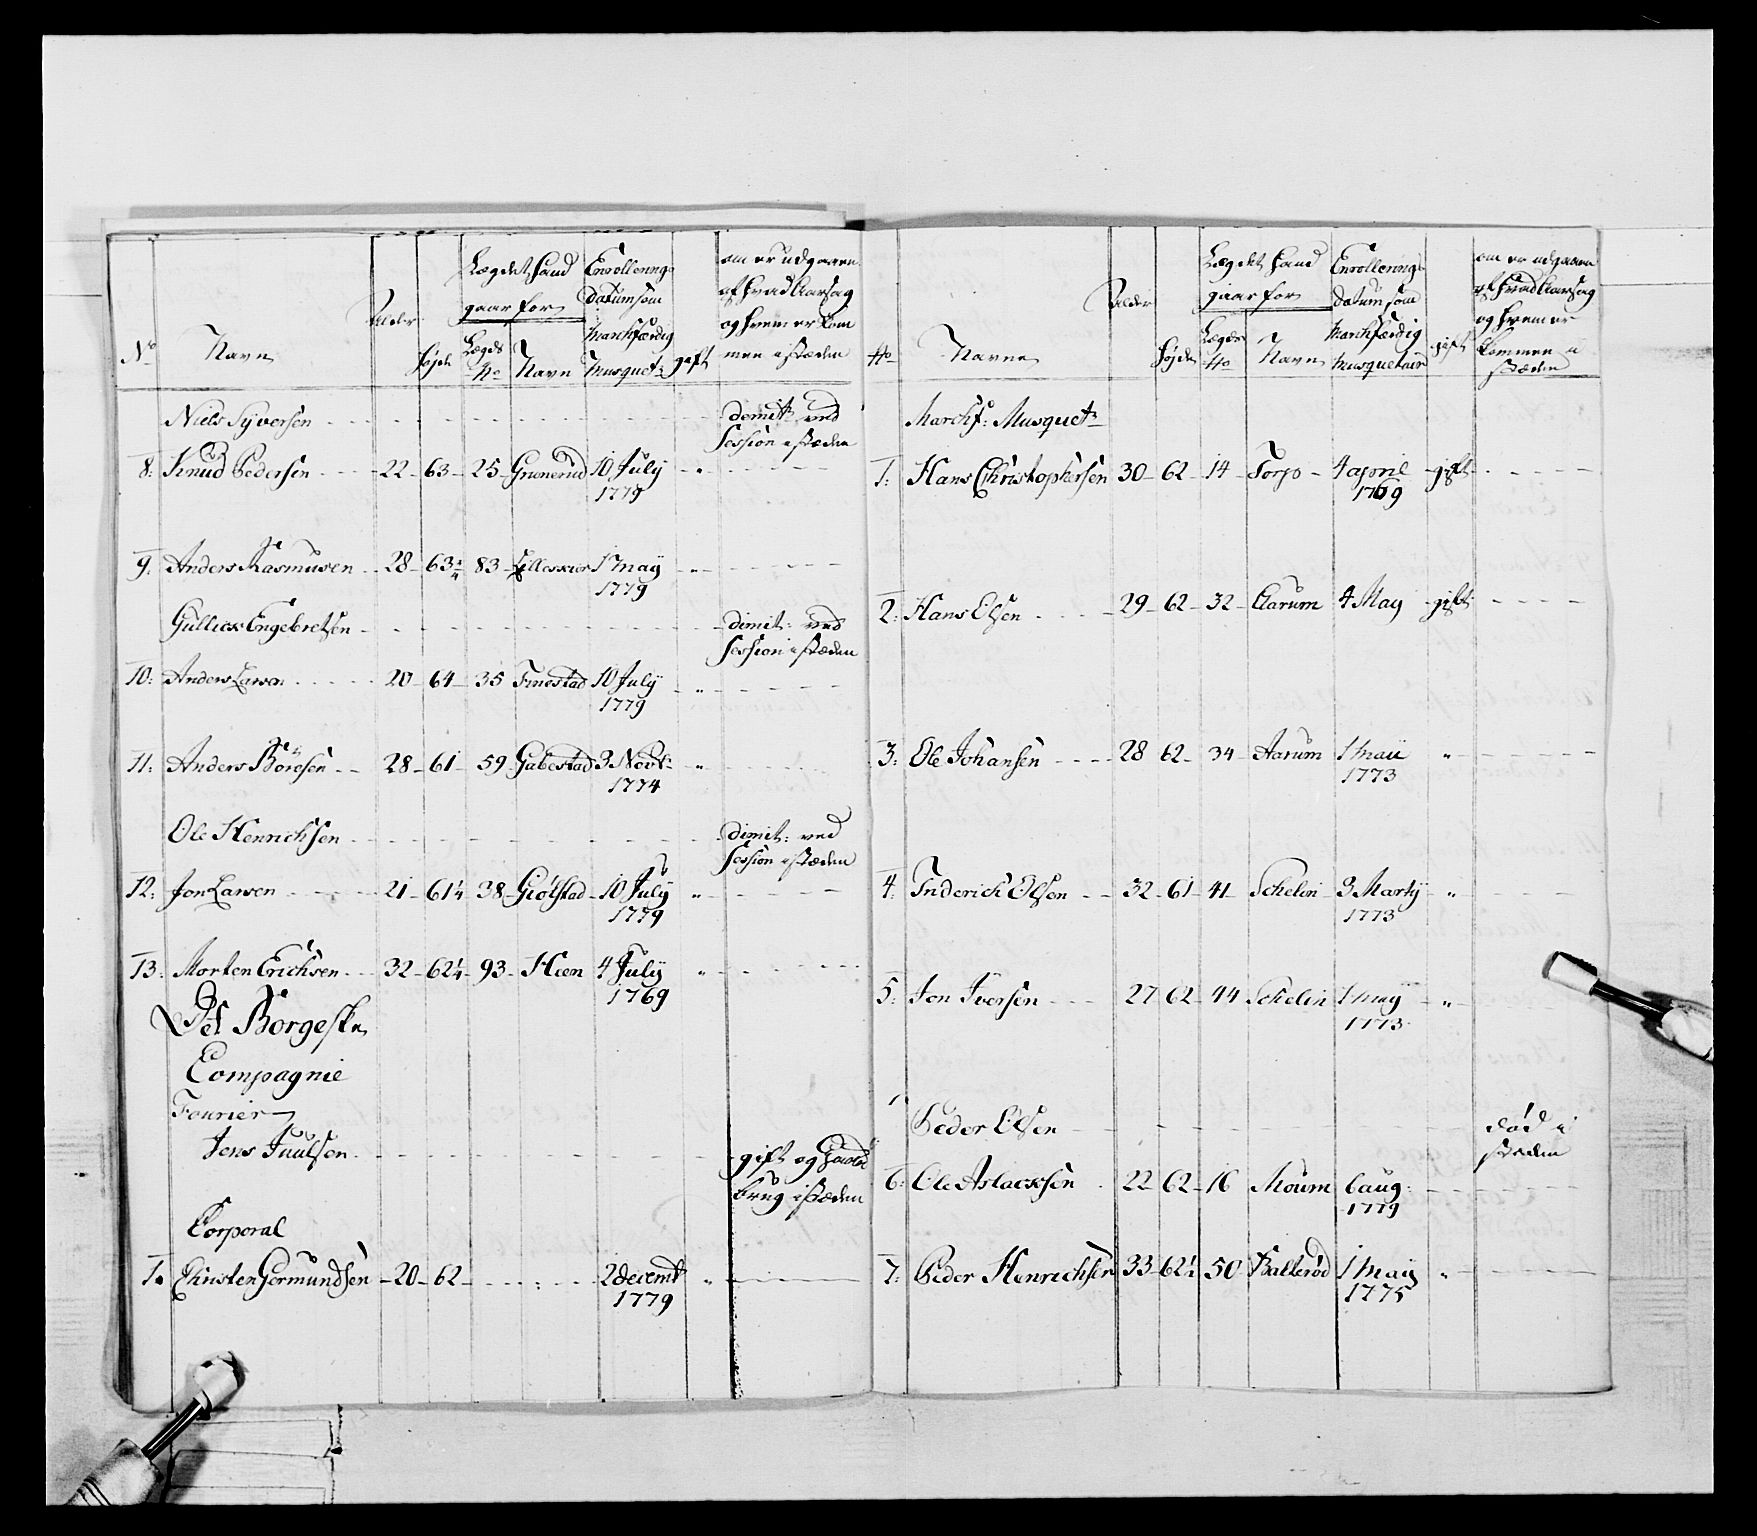 No Navn Alder Høyde Lægdet hand gaar for Lægds No Navn Enrollerings datum som marchfærdig Musquet: gift om er udgaaen af hvad Aarsag og hvem er kommen i stæden
Niels Syversen - - - demit: ved
Session i stæden
8: Knud Pedersen - - 22 - 63 - 25 - Grønerud 10 July - " - - -
1779
9: Anders Rasmusen - - 28 - 63 1/4 83 - 1 May - " - - -
1779
Gullick Engebretsen - - - dimit: ved
Session i stæden
10: Anders Larsen - - - 20 - 64 - 35 Finestad 10 July - " - - -
1779
11: Anders Böresen - - 28 - 61 - 59 - Gabestad 3 Novb: - " - - -
1774
Ole Henrichsen - - - dimit: ved
Session i stæden
12: Jon Larsen - - - 21 - 61 1/4 38 - Giølstad - 10 July " - - -
1779
13: Morten Erichsen - - 32 - 62 1/4 93 - Hien 4 July " - - -
1769
Det Borgeske
Compagnie
Fourier
Jens Juulsen - - - gift og
brug i stæden
Corporal
1. Christen Gormundsen - 20 - 62 - - - 2 decembr " - - -
1779
No Navn Alder Høyde Lægdet hand gaar for Lægds No Navn Enrollerings datum som Marchfærdig Musqueteer gift om er udgaaen af hvad Aarsag og hvem er kommen i stæden
Marchf: Musquet:
1: Hans Christophersen 30 - 62 - 14 - Torp - 4 april - gift - - -
1769
2: Hans Olsen - - - 29 - 62 - 32 - Aarum 4 May - gift - - -
3: Ole Johansen - - - 28 62 - 34 - Aarum 1 Maii " - - -
1773
4: Friderich Olsen - - 32 - 61 - 41 - Schelin 3 Marty - " - - -
1773
5: Jon Iversen - - - 27 - 62 - 44 Schelin 1 May - " - - -
1773
Peder Olsen - - - død i
stæden
6: Ole Aslacksen - 22 - 62 - 16 Moum 6 aug: - - -
1779
7: Peder Henrichsen 33 - 62 1/2 50 Balterød 1 May " - - -
1775